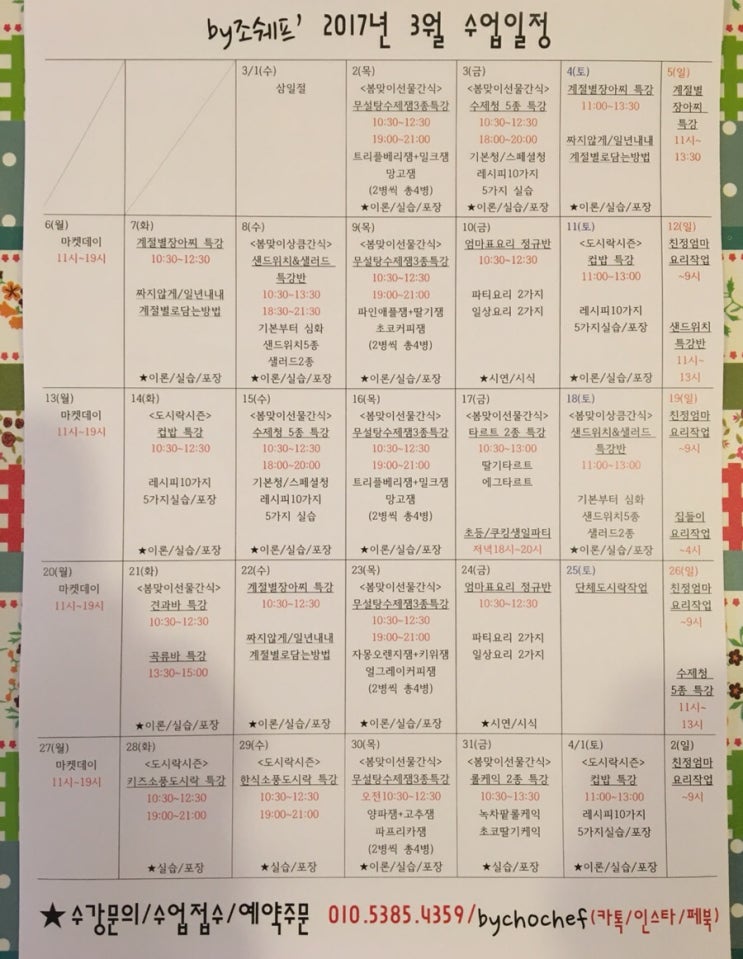 by조쉐프' 2017년 3월 수업일정
3/1(수)
삼일절
2(목)
<봄맞이선물간식>
무설탕수제잼3종특강
10:30~12:30
19:00~21:00
트리플베리잼+밀크잼
망고잼
(2병씩 총4병)
★이론/실습/포장
3(금)
<봄맞이선물간식>
수제청 5종 특강
10:30~12:30
18:00~20:00
기본청/스페셜청
레시피10가지
5가지 실습
★이론/실습/포장
4(토)
계절별장아찌 특강
11:00~13:30
짜지않게/일년내내
계절별로담는방법
★이론/실습/포장
5(일)
계절별
장아찌
특강
11시~
13:30
6(월)
마켓데이
11시~19시
7(화)
계절별장아찌 특강
10:30~12:30
짜지않게/일년내내
계절별로담는방법
★이론/실습/포장
8(수)
<봄맞이상큼간식>
샌드위치&샐러드
특강반
10:30~13:30
18:30~21:30
기본부터 심화
샌드위치5종
샐러드2종
★이론/실습/포장
9(목)
<봄맞이선물간식>
무설탕수제잼3종특강
10:30~12:30
19:00~21:00
파인애플잼+딸기잼
초코커피잼
(2병씩 총4병)
★이론/실습/포장
10(금)
엄마표요리 정규반
10:30~12:30
파티요리 2가지
일상요리 2가지
★시연/시식
11(토)
<도시락시즌>
컵밥 특강
11:00~13:00
레시피10가지
5가지실습/포장
★이론/실습/포장
12(일)
친정엄마
요리작업
~9시
샌드위치
특강반
11시~
13시
13(월)
마켓데이
11시~19시
14(화)
<도시락시즌>
컵밥 특강
10:30~12:30
레시피10가지
5가지실습/포장
★이론/실습/포장
15(수)
<봄맞이선물간식>
수제청 5종 특강
10:30~12:30
18:00~20:00
기본청/스페셜청
레시피10가지
5가지 실습
★이론/실습/포장
16(목)
<봄맞이선물간식>
무설탕수제잼3종특강
10:30~12:30
19:00~21:00
트리플베리잼+밀크잼
망고잼
(2병씩 총4병)
★이론/실습/포장
17(금)
<봄맞이선물간식>
타르트 2종 특강
10:30~13:00
딸기타르트
에그타르트
초등/쿠킹생일파티
저녁18시~20시
18(토)
<봄맞이상큼간식>
샌드위치&샐러드
특강반
11:00~13:00
기본부터 심화
샌드위치5종
샐러드2종
★이론/실습/포장
19(일)
친정엄마
요리작업
~9시
집들이
요리작업
~4시
20(월)
마켓데이
11시~19시
21(화)
<봄맞이선물간식>
견과바 특강
10:30~12:30
곡류바 특강
13:30~15:00
★이론/실습/포장
22(수)
계절별장아찌 특강
10:30~12:30
짜지않게/일년내내
계절별로담는방법
★이론/실습/포장
23(목)
<봄맞이선물간식>
무설탕수제잼3종특강
10:30~12:30
19:00~21:00
자몽오렌지잼+키위잼
얼그레이커피잼
(2병씩 총4병)
★이론/실습/포장
24(금)
엄마표요리 정규반
10:30~12:30
파티요리 2가지
일상요리 2가지
★시연/시식
25(토)
단체도시락작업
26(일)
친정엄마
요리작업
~9시
수제청
5종 특강
11시~
13시
27(월)
마켓데이
11시~19시
28(화)
<도시락시즌>
키즈소풍도시락 특강
10:30~12:30
19:00~21:00
★실습/포장
29(수)
<도시락시즌>
한식소풍도시락 특강
10:30~12:30
19:00~21:00
★실습/포장
30(목)
<봄맞이선물간식>
무설탕수제잼3종특강
오전10:30~12:30
양파잼+고추잼
파프리카잼
(2병씩 총4병)
★이론/실습/포장
31(금)
<봄맞이선물간식>
롤케익 2종 특강
10:30~13:30
녹차팥롤케익
초코딸기케익
★실습/포장
4/1(토)
<도시락시즌>
컵밥 특강
11:00~13:00
레시피10가지
5가지실습/포장
★이론/실습/포장
2(일)
친정엄마
요리작업
~9시
★수강문의/수업접수/예약주문 010.5385.4359/bychochef(카톡/인스타/페북)